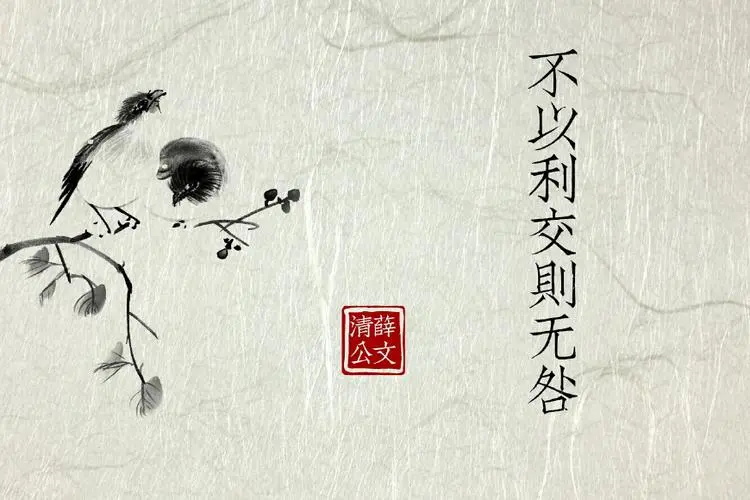 不以利交則无咎
薛文
清公